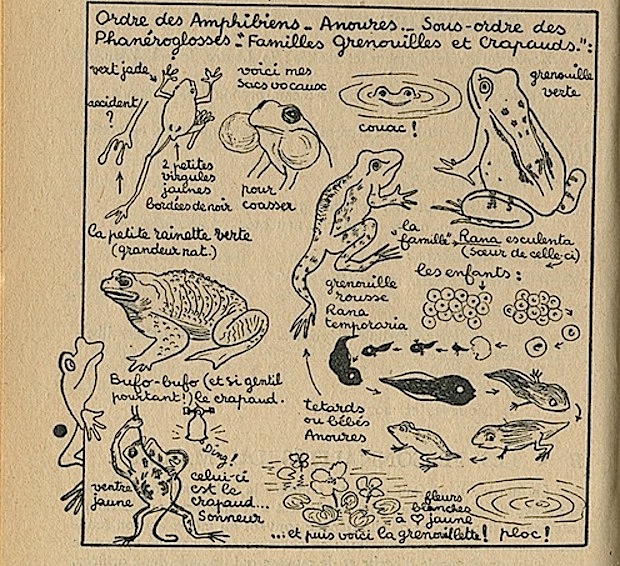 Ordre des Amphibiens_ Anoures._ Sous-ordre des
Phanéroglosses-"Familles Grenouilles et Crapauds.":
vert jade
accident
?
2 petites
virgules
jaunes
bordées de noir
voici mes
sacs vocaux
pour
coasser
couac !
grenouille
verte
La petite rainette verte
(grandeur nat.)
"la
famille"
Rana esculenta
(sœur de celle-ci)
les enfants :
grenouille
rousse
Rana
temporaria
Bufo-bufo (et si gentil
pourtant!) le crapaud.
Tetards
ou bébés
Anoures
Ding!
ventre
jaune
celui-ci
est le
crapaud...
Sonneur
fleurs
blanches
à ♡ jaune
...et puis voici la grenouillette! ploc!